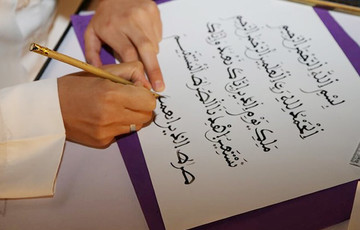 بسم الله الرحمن الرحيم
الحمد لله رب العلمين الرحمن الرحيم
ملك يوم الدين إياك نعبد وإياك
نستعين اهدنا الصراط المستقيم
صراط الذين